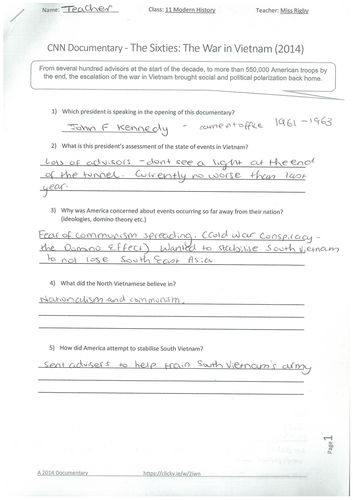 Name: Teacher Class: 11 Modern History Teacher: Miss Rigby
CNN Documentary - The Sixties: The War in Vietnam (2014)
From several hundred advisors at the start of the decade, to more than 550,000 American troops by
the end, the escalation of the war in Vietnam brought social and political polarization back home.
1) Which president is speaking in the opening of this documentary?
John F Kennedy - came into office 1961 - 1963
2) What is this president's assessment of the state of events in Vietnam?
Lots of advisors - dont see a light at the end
of the tunnel. Currently no worse than last
year.
3) Why was America concerned about events occurring so far away from their nation?
(ideologies, domino theory etc.)
Fear of communism spreading. (Cold War conspiracy -
the Domino Effect) Wanted to stabilise South Vietnam
to not lose South East Asia
4) What did the North Vietnamese believe in?
Nationalism and communism.
5) How did America attempt to stabilise South Vietnam?
Sent advisers to help train South Vietnam's army
Page 1
A 2014 Documentary https://clickv.ie/w/2iwn